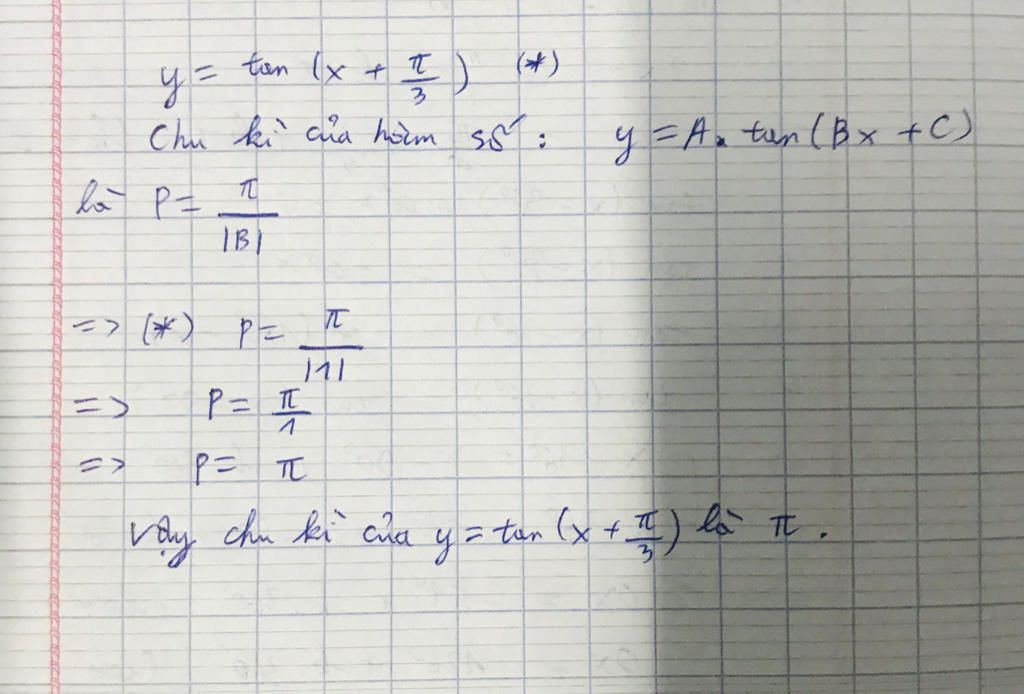 y = tan (x + π/3) (*)
Chu kì của hàm số: y = A. tan (Bx + C)
là P = π/|B|
=> (*) P = π/|1|
=> P = π/1
=> P = π
Vậy chu kì của y = tan (x + π/3) là π.